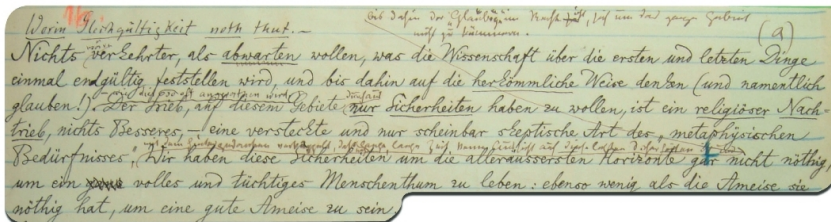 Worin Gleichgültigkeit noth thut. —
bis dahin der Gläubigen
(a)
Nichts wäre verkehrter, als abwarten wollen, was die Wissenschaft über die ersten und letzten Dinge
einmal endgültig feststellen wird, und bis dahin auf die herkömmliche Weise denken (und namentlich
glauben!) — wie diess so oft angerathen wird. Der Trieb, auf diesem Gebiete durchaus nur Sicherheiten haben zu wollen, ist ein religiöser Nach-
trieb, nichts Besseres, — eine versteckte und nur scheinbar skeptische Art des „metaphysischen
Bedürfnisses“, Wir haben diese Sicherheiten um die alleräussersten Horizonte gar nicht nöthig,
um ein volles und tüchtiges Menschenthum zu leben: ebenso wenig als die Ameise sie
nöthig hat, um eine gute Ameise zu sein,